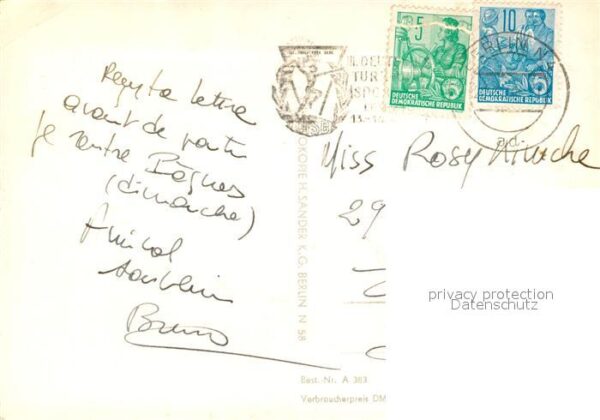 Reçu ta lettre
avant de partir
Je rentre Bagnes
(dimanche)
Amical
Bruno
Miss Rosy
29
5
DEUTSCHE
DEMOKRATISCHE REPUBLIK
10
DEUTSCHE
DEMOKRATISCHE REPUBLIK
II. DEUT
TUR
SPO
BERLIN N 4
H. SANDER K.G. BERLIN N 58
Best. Nr. A 383
Verbraucherpreis DM
privacy protection
Datenschutz